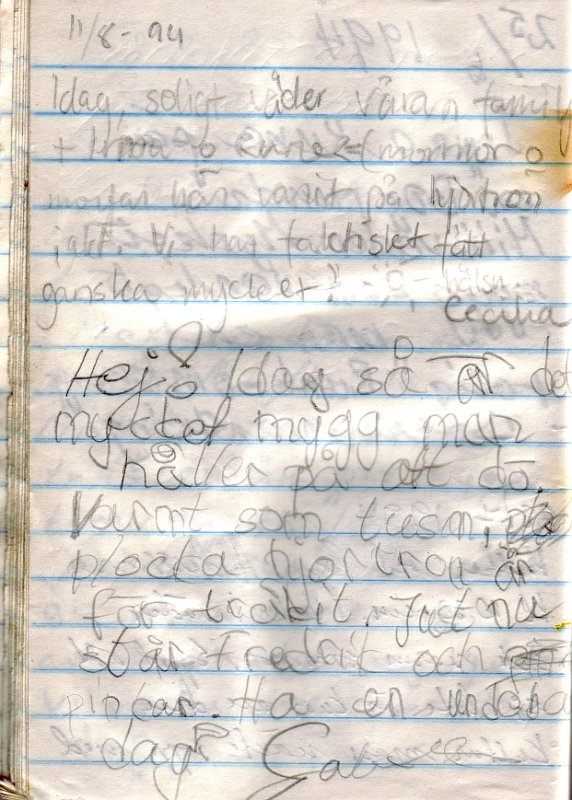 11/8-94
Idag, soligt väder våran famil
+ Rune (mormor o
morfar har varit på hjortron
jakt. Vi har faktiskt fått
ganska mycket! hälsn.
Cecilia
Hej! Idag så är det
mycket mygg man
håller på att dö.
Varmt som tusan,
plocka hjortron är
för tråkit. Just nu
står Fredrik och
pinkar. Ha en underba
dag!